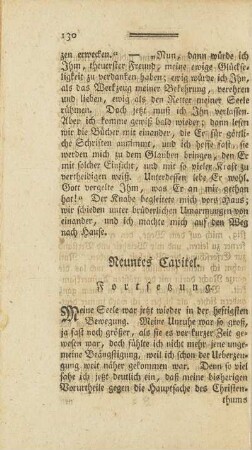 130
zen erwecken.“ — „Nun, dann würde ich
Ihm, theuerster Freund, meine ewige Glückse-
ligkeit zu verdanken haben; ewig würde ich Ihn,
als das Werkzeug meiner Bekehrung, verehren
und lieben, ewig als den Retter meiner Seele
rühmen. Doch jetzt muß ich Ihn verlassen.
Aber ich komme gewiß bald wieder; dann lesen
wir die Bücher mit einander, die Er für gött-
liche Schriften ausgiebt, und ich hoffe fast, sie
werden mich zu dem Glauben bringen, den Er
mit solcher Einsicht, und mit so vieler Kraft zu
vertheidigen weiß. Unterdessen lebe Er wohl.
Gott vergelte Ihm, was Er an mir gethan
hat!“ Der Knabe begleitete mich vors Haus;
wir schieden unter brüderlichen Umarmungen von
einander, und ich machte mich auf den Weg
nach Hause.
Neuntes Capitel.
Fortsetzung.
Meine Seele war jetzt wieder in der heftigsten
Bewegung. Meine Unruhe war so groß,
ja fast noch größer, als sie es vor kurzer Zeit ge-
wesen war, doch fühlte ich nicht mehr jene unge-
meine Beängstigung, weil ich schon der Ueberzeu-
gung weit näher gekommen war. Denn so viel
sahe ich jetzt deutlich ein, daß meine bisherigen
Vorurtheile gegen die Hauptsache des Christen-
thums